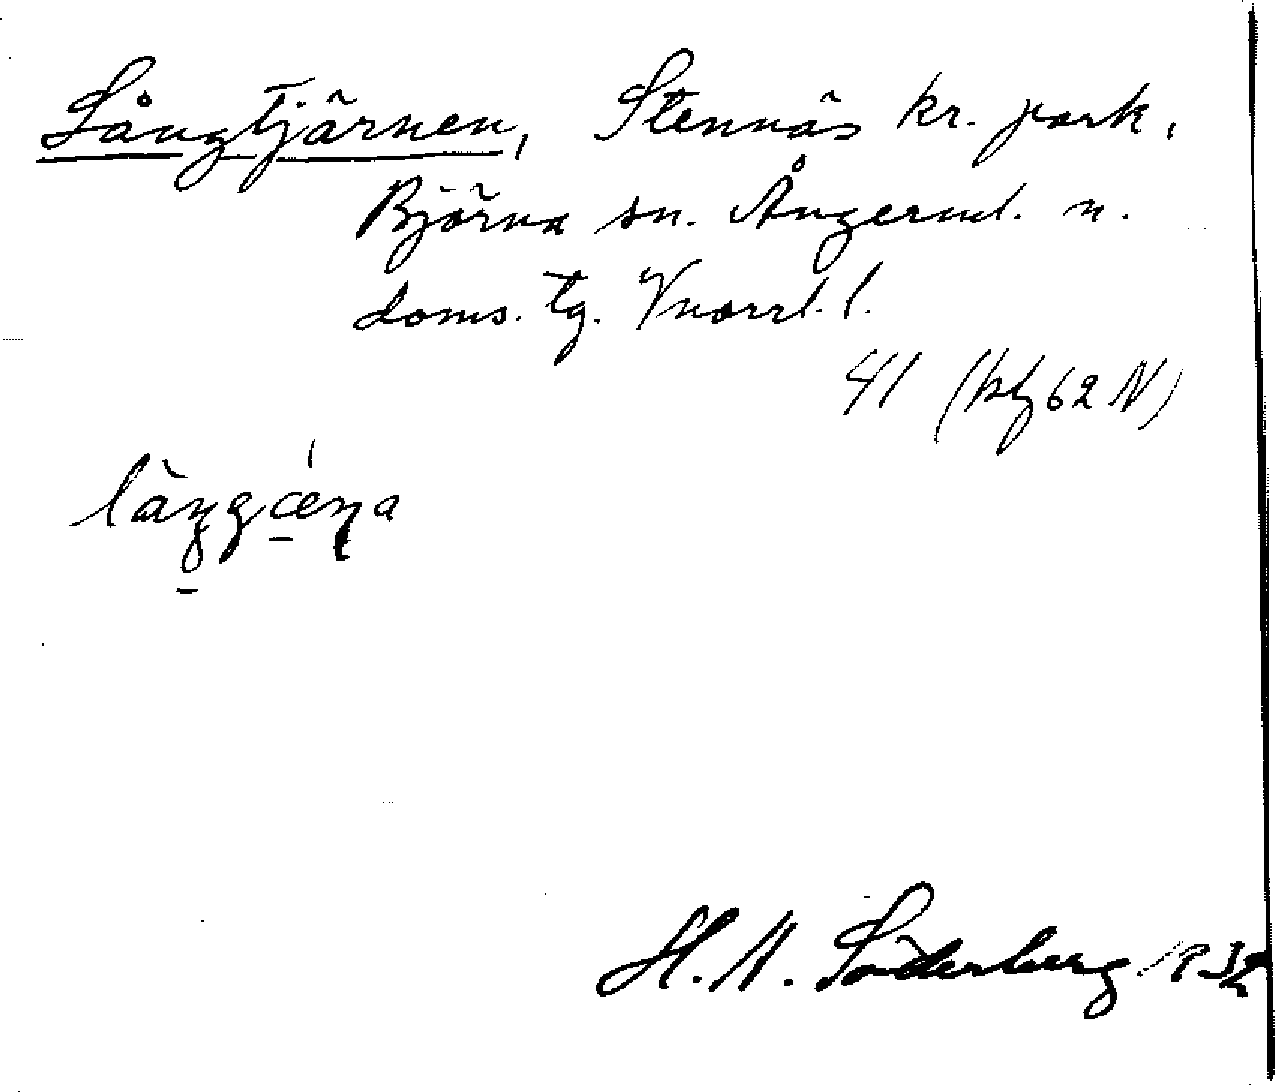 Långtjärnen, Stennäs kr. park,
Björna sn. Ångerml. n.
doms. tg. Vnorrl. l.
41 (kbl 62 N)
H. A. Söderberg 1932